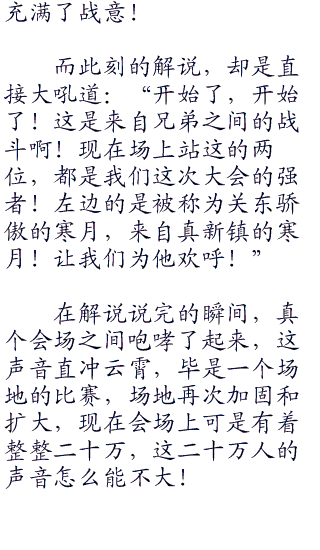 充满了战意！
　　而此刻的解说，却是直
接大吼道：“开始了，开始
了！这是来自兄弟之间的战
斗啊！现在场上站这的两
位，都是我们这次大会的强
者！左边的是被称为关东骄
傲的寒月，来自真新镇的寒
月！让我们为他欢呼！”
　　在解说说完的瞬间，真
个会场之间咆哮了起来，这
声音直冲云霄，毕是一个场
地的比赛，场地再次加固和
扩大，现在会场上可是有着
整整二十万，这二十万人的
声音怎么能不大！